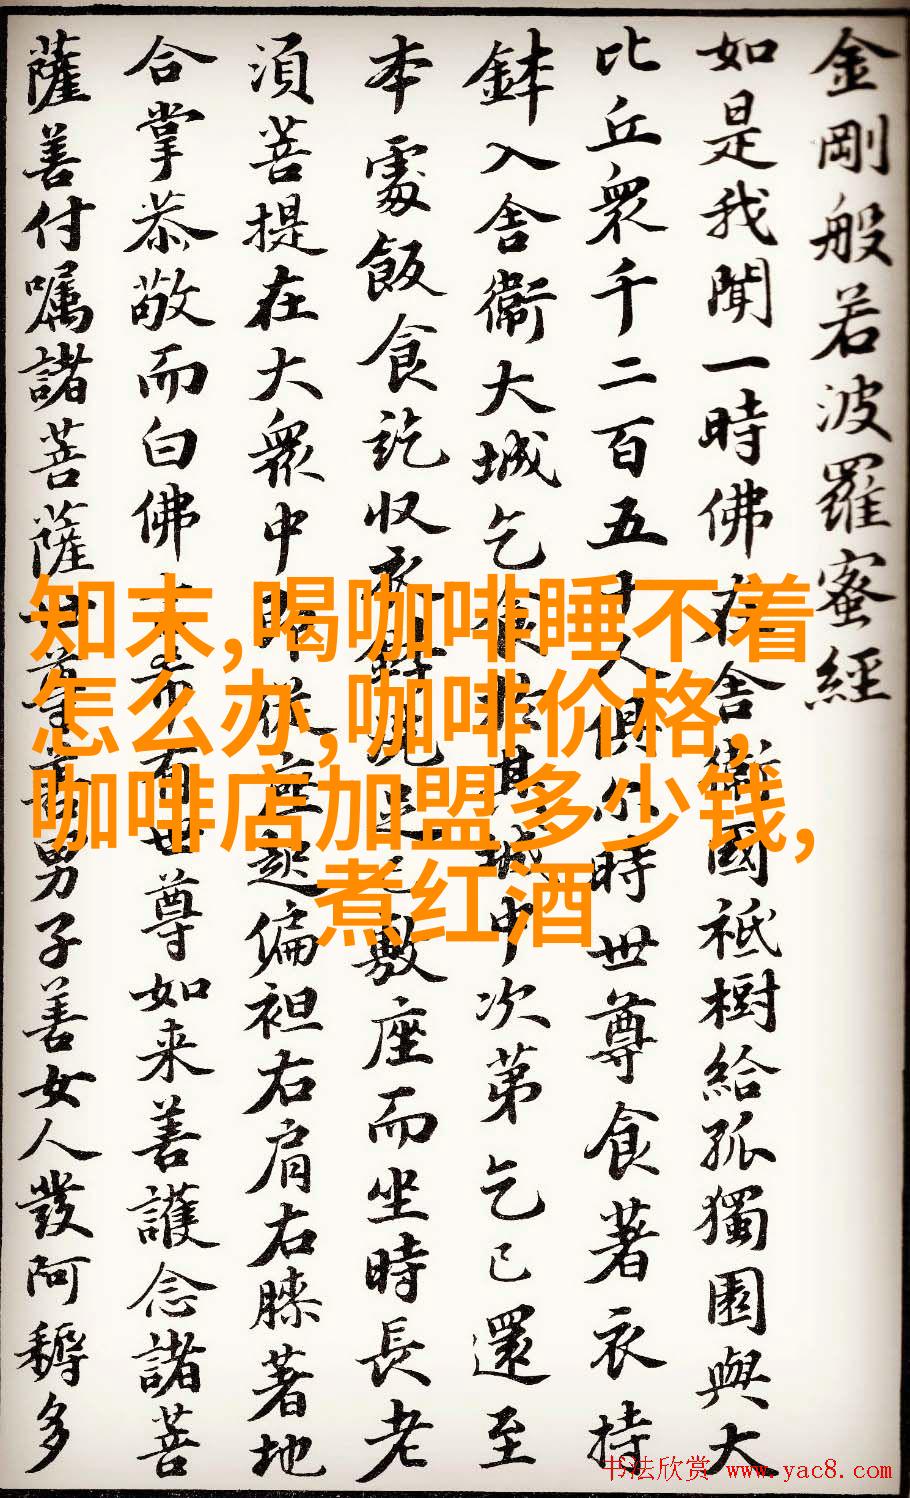 金剛般若波羅蜜經
如是我聞一時佛在舍衞國祇樹給孤獨園與大
比丘衆千二百五十人俱尒時世尊食著衣持
鉢入舍衞大城乞食於其城中次第乞已還至
本處飯食訖收衣鉢洗足已敷座而坐時長老
須菩提在大衆中即從座起偏袒右肩右膝著地
合掌恭敬而白佛言希有世尊如来善護念諸菩
薩善付嘱諸菩薩世尊善男子善女人發阿耨多
知末,喝咖啡睡不着
怎么办,咖啡价格,
咖啡店加盟多少钱,
煮红酒
书法欣赏 www.yac8.com